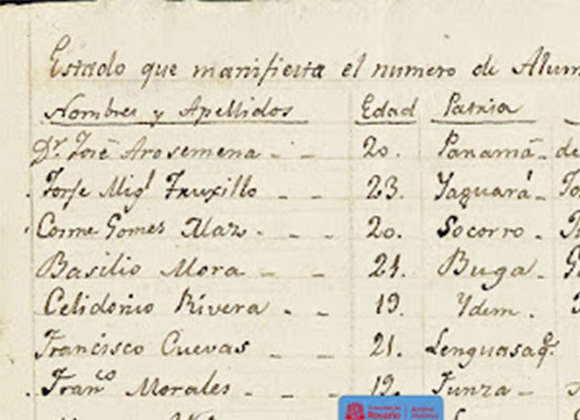 Estado que manifiesta el numero de Alum
Nombres y Apellidos Edad Patria
Dr. José Arosemena 20. Panamá de
Jorje Migl Truxillo 23. Yaguará
Cosme Gomes 20. Socorro
Basilio Mora 21. Buga
Celidonio Rivera 19. Ydem.
Francisco Cuevas 21. Lenguasaq.
Franco Morales 19. Funza
Rosario